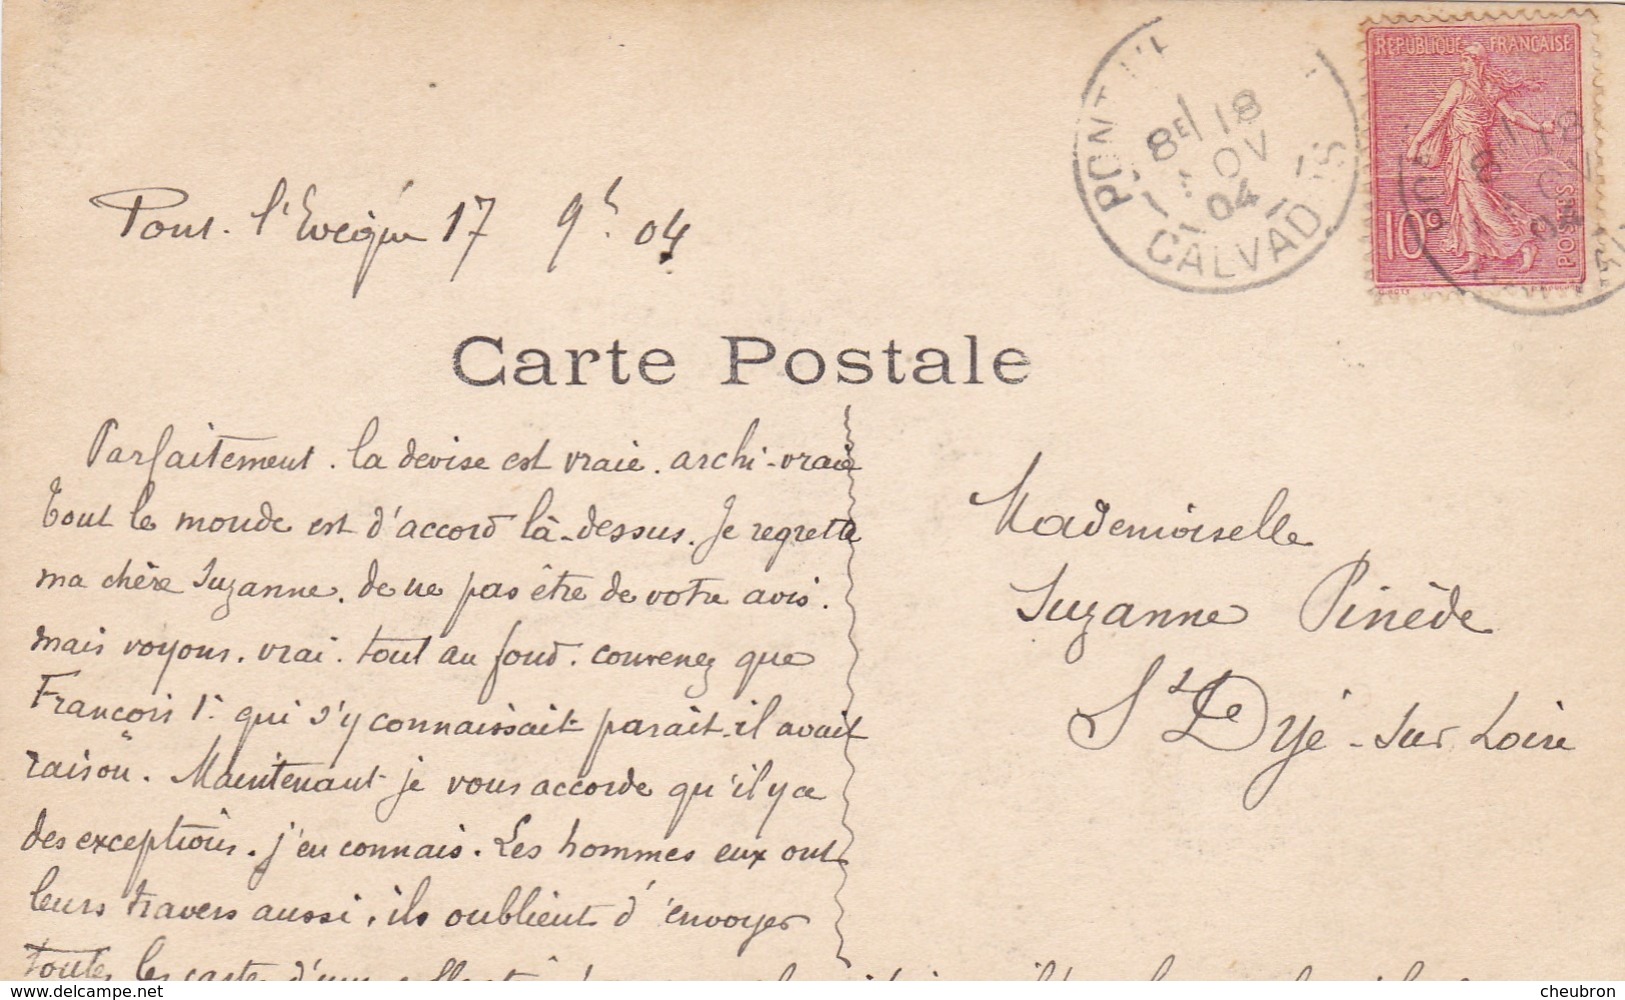 Pont-l'Evêque 17 9h 04
PONT-L'
8E/ 18
OV
04
CALVADOS
REPUBLIQUE FRANÇAISE
10c
POSTES
Carte Postale
Parfaitement. la devise est vraie. archi-vraie
tout le monde est d'accord là-dessus. Je regrette
ma chère Suzanne. de ne pas être de votre avis.
mais voyons. vrai. tout au fond. convenez que
François 1er qui s'y connaissait paraît-il avait
raison". Maintenant je vous accorde qu'il y a
des exceptions. j'en connais. Les hommes eux ont
leurs travers aussi, ils oublient d'envoyer
toutes les cartes d'une
Mademoiselle
Suzanne Pinède
St Dyé-sur Loire
www.delcampe.net
cheubron